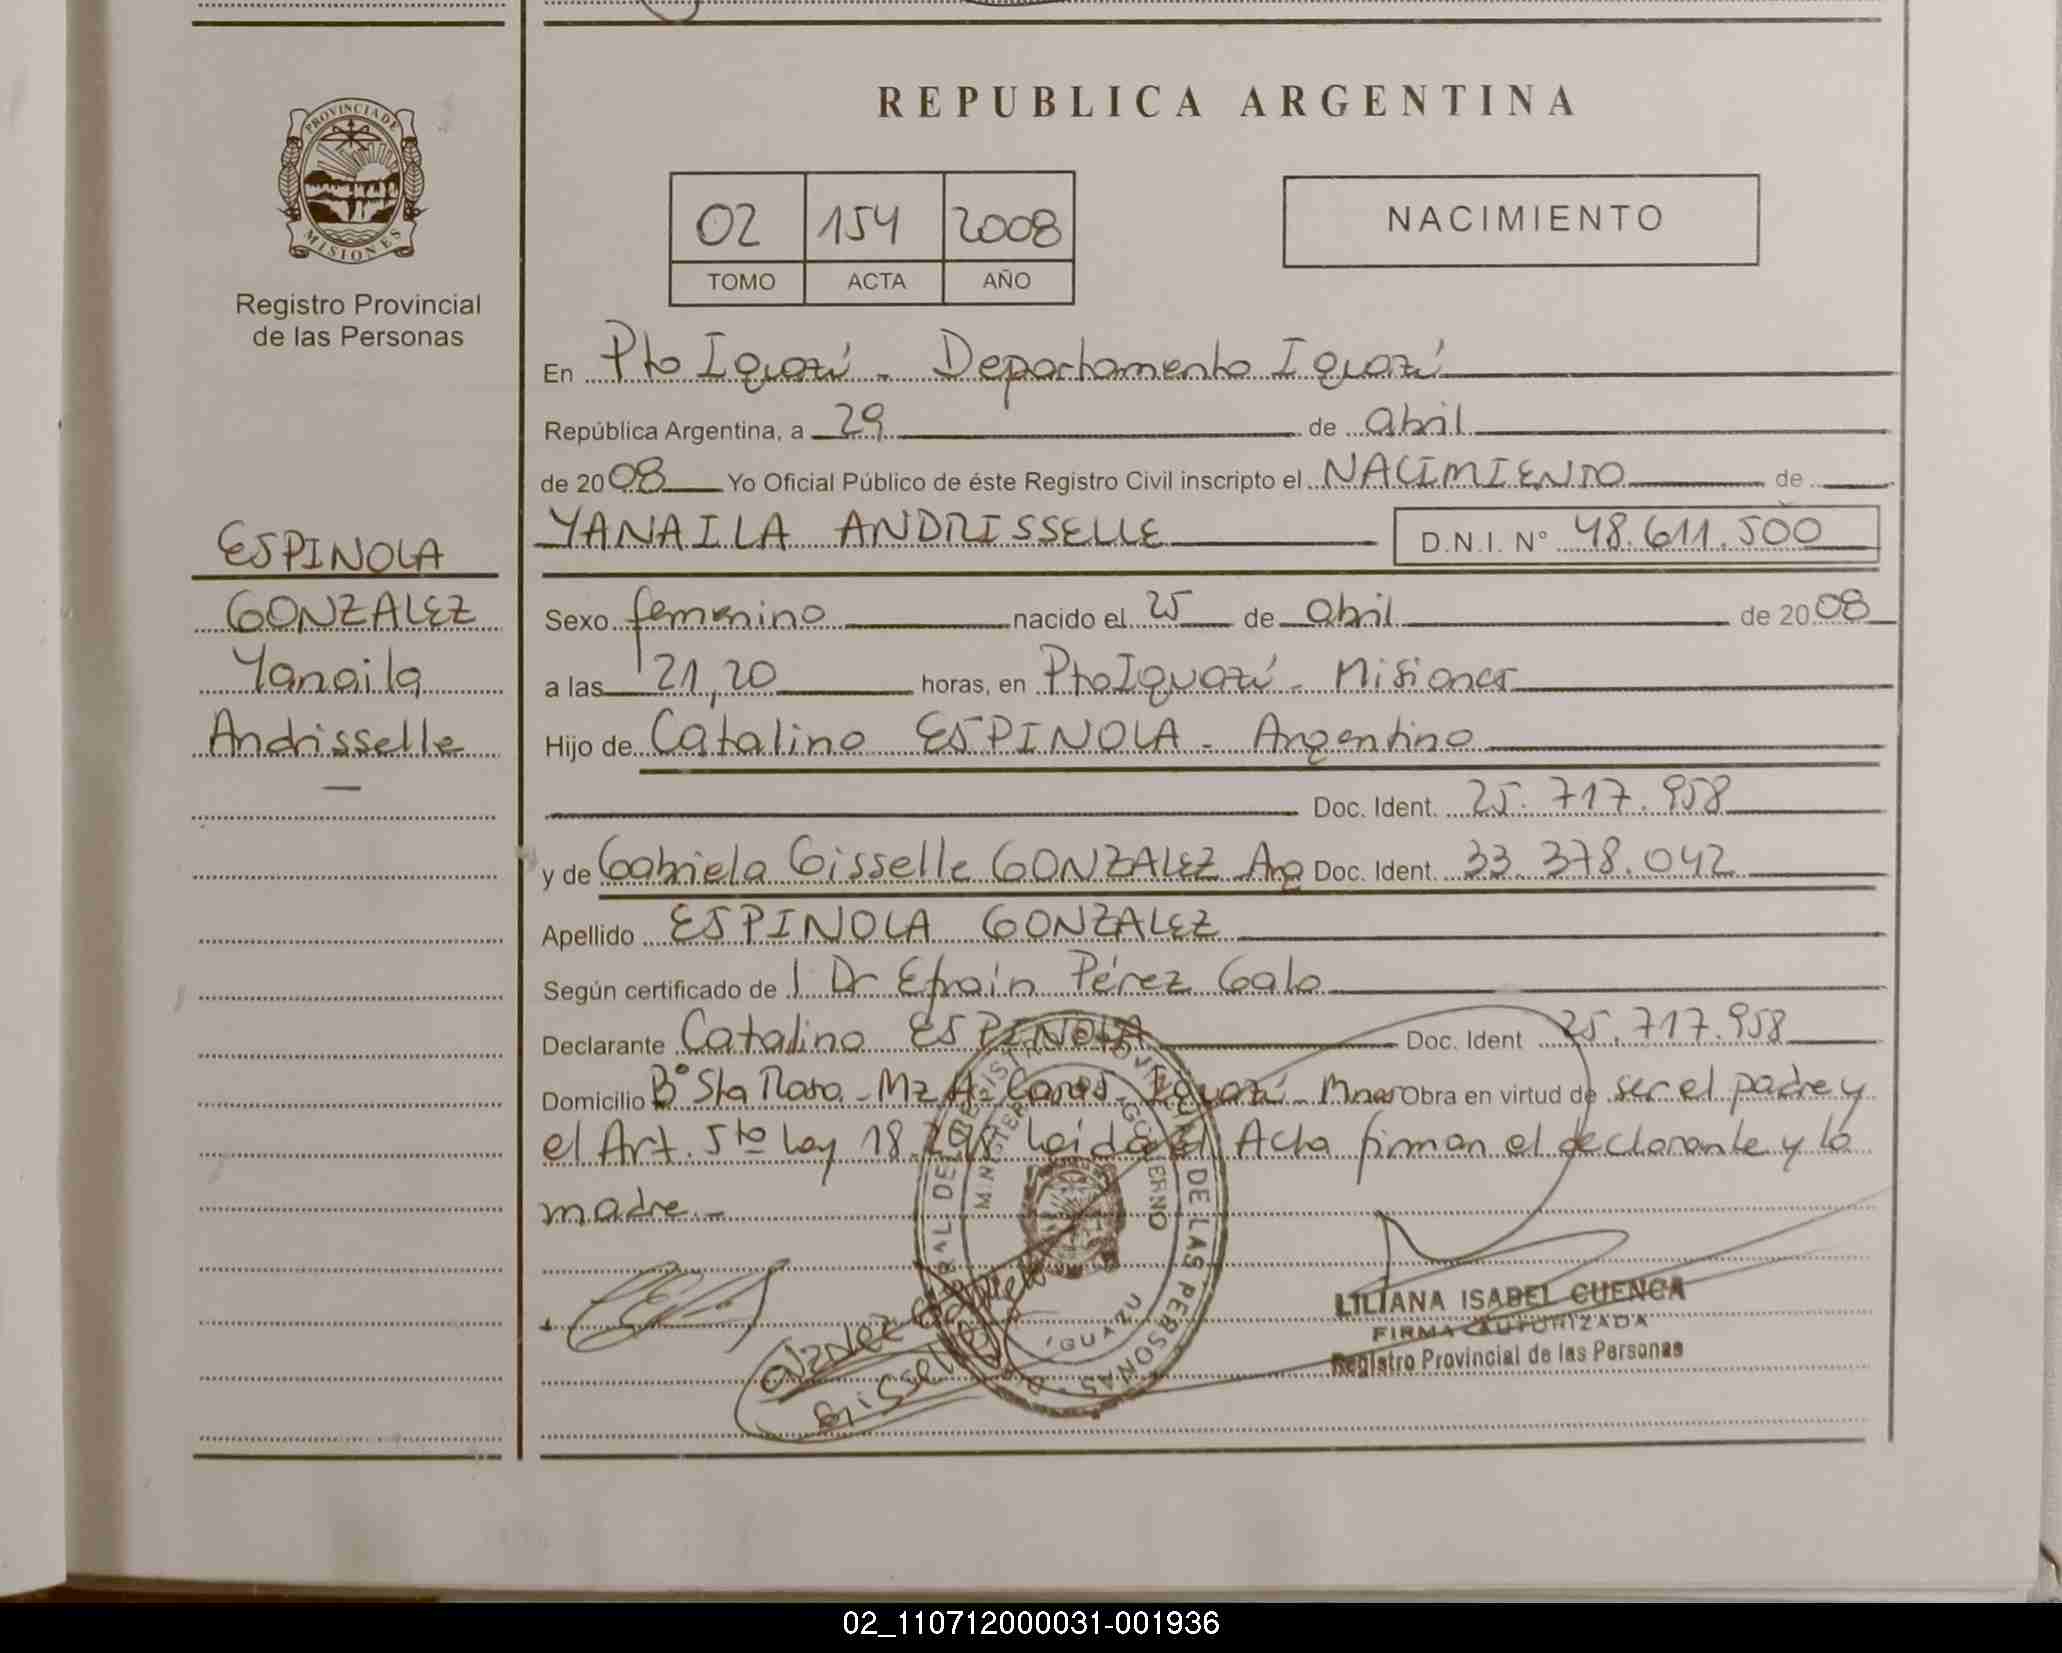 REPUBLICA ARGENTINA
PROVINCIA DE
MISIONES
Registro Provincial
de las Personas
02 154 2008
TOMO ACTA AÑO
NACIMIENTO
En Pto Iguazú - Departamento Iguazú
República Argentina, a 29 de abril
de 2008 Yo Oficial Público de éste Registro Civil inscripto el NACIMIENTO de
YANAILA ANDRISSELLE D.N.I. Nº 48.611.500
ESPINOLA
GONZALEZ
Yanaila
Andrisselle
Sexo femenino nacido el 25 de abril de 2008
a las 21,20 horas, en Pto Iguazú - Misiones
Hijo de Catalino ESPINOLA - Argentino
Doc. Ident. 25.717.958
y de Gabriela Gisselle GONZALEZ Arg Doc. Ident. 33.378.042
Apellido ESPINOLA GONZALEZ
Según certificado de l Dr Efraín Pérez Galo
Declarante Catalino ESPINOLA Doc. Ident 25.717.958
Domicilio Bº Sta Rosa - Mz A - Iguazú - Mnes Obra en virtud de ser el padre y
el Art. 5to Ley 18. Leida el Acta firman el declarante y la
madre.-
MINISTERIO GOBIERNO
DE LAS PERSONAS
IGUAZU
Gonzalez Gabriela
Gisselle
LILIANA ISABEL CUENCA
FIRMA AUTORIZADA
Registro Provincial de las Personas
02_110712000031-001936